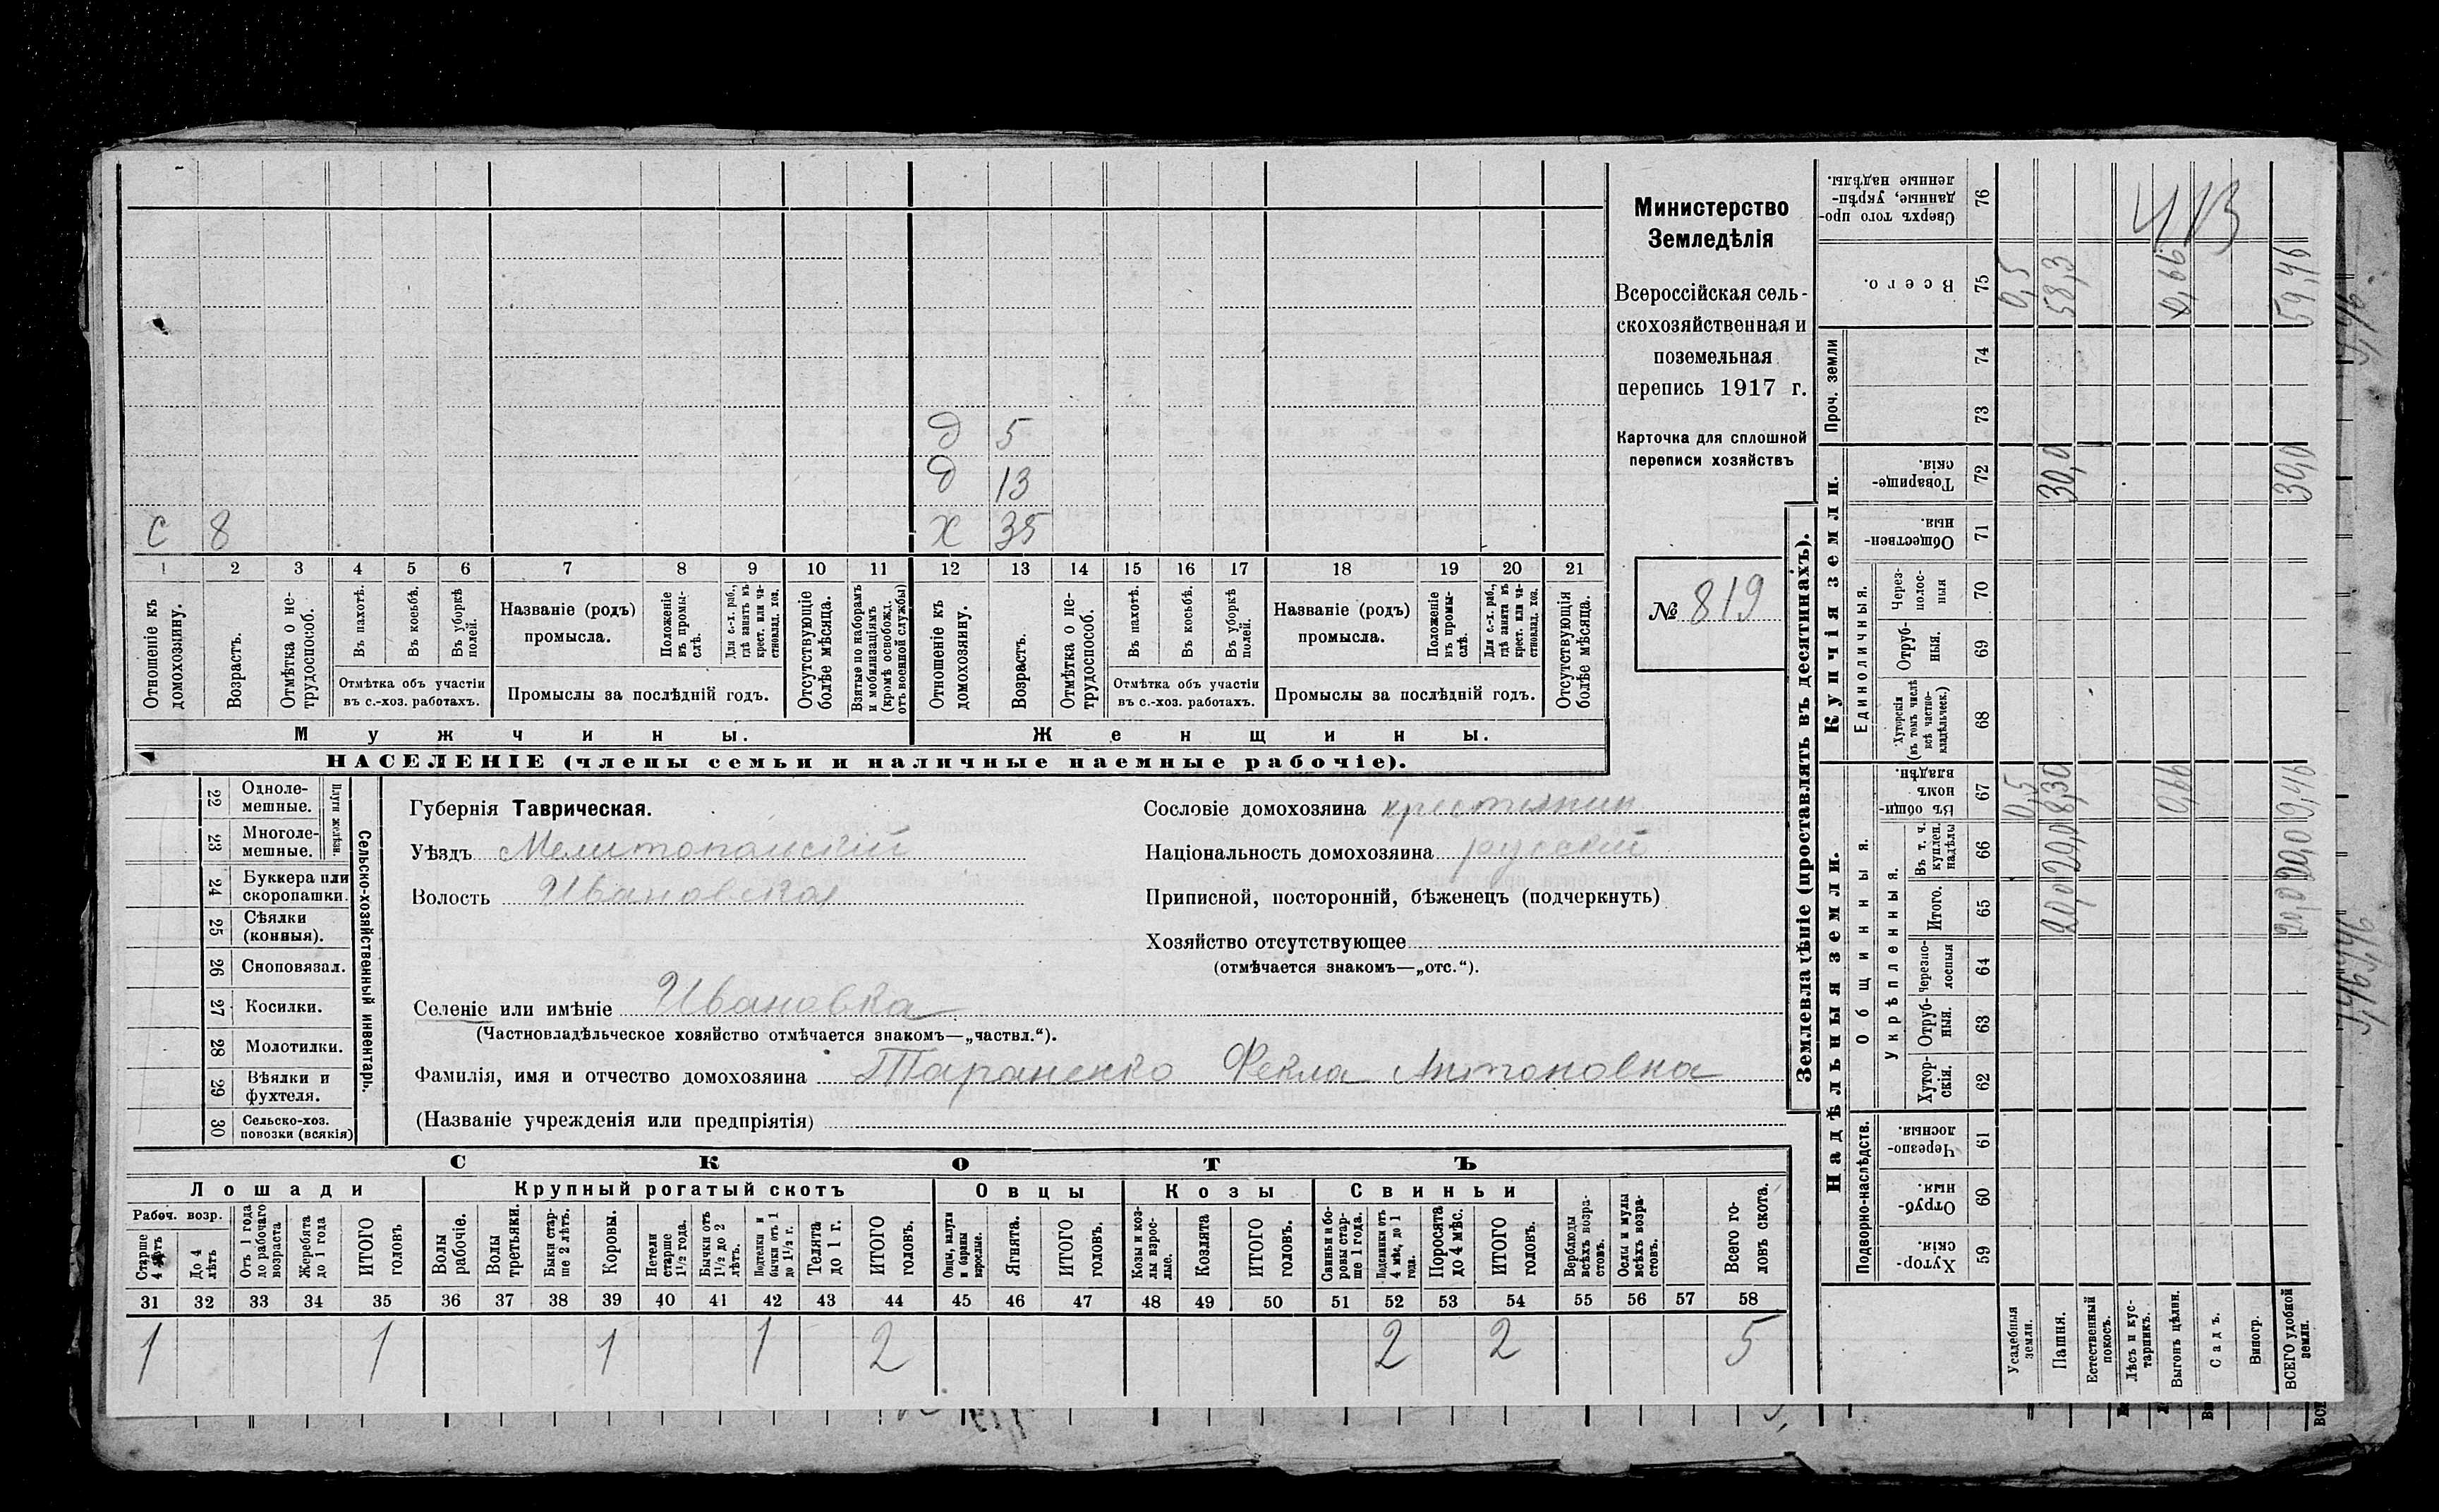 Министерство
Земледѣлія
Всероссійская сель-
скохозяйственная и
поземельная
перепись 1917 г.
Карточка для сплошной
переписи хозяйствъ
№ 819
д 5
д 13
с 8 х 35
1 2 3 4 5 6 7 8 9 10 11 12 13 14 15 16 17 18 19 20 21
Отношеніе къ домохозяину.
Возрастъ.
Отмѣтка о не-трудоспособ.
Въ пахотѣ.
Въ косьбѣ.
Въ уборкѣ полей.
Отмѣтка объ участіи
въ с.-хоз. работахъ.
Названіе (родъ)
промысла.
Положеніе въ промы-слѣ.
Для с.-х. раб., гдѣ занятъ въ крест. или ча-стновлад. хоз.
Промыслы за послѣдній годъ.
Отсутствующіе болѣе мѣсяца.
Взятые по наборамъ и мобилизаціямъ (кромѣ освобожд. отъ военной службы)
Отношеніе къ домохозяину.
Возрастъ.
Отмѣтка о не-трудоспособ.
Въ пахотѣ.
Въ косьбѣ.
Въ уборкѣ полей.
Отмѣтка объ участіи
въ с.-хоз. работахъ.
Названіе (родъ)
промысла.
Положеніе въ промы-слѣ.
Для с.-х. раб., гдѣ занята въ крест. или ча-стновлад. хоз.
Промыслы за послѣдній годъ.
Отсутствующія болѣе мѣсяца.
Мужчины. Женщины.
НАСЕЛЕНІЕ (члены семьи и наличные наемные рабочіе).
Сельско-хозяйственный инвентарь.
Плуги желѣзн.
22 Однолемешные.
23 Многолемешные.
24 Буккера или скоропашки.
25 Сѣялки (конныя).
26 Сноповязал.
27 Косилки.
28 Молотилки.
29 Вѣялки и фухтеля.
30 Сельско-хоз. повозки (всякія)
Губернія Таврическая.
Уѣздъ Мелитопольскій
Волость Ивановская
Селеніе или имѣніе Ивановка
(Частновладѣльческое хозяйство отмѣчается знакомъ—„частвл.“).
Фамилія, имя и отчество домохозяина Тараненко Фекла Антоновна
(Названіе учрежденія или предпріятія)
Сословіе домохозяина крестьянин
Національность домохозяина русскій
Приписной, посторонній, бѣженецъ (подчеркнуть)
Хозяйство отсутствующее
(отмѣчается знакомъ—„отс.“).
СКОТЪ
Лошади Крупный рогатый скотъ Овцы Козы Свиньи
Рабоч. возр.
Старше 4 лѣтъ
До 4 лѣтъ
Отъ 1 года до рабочаго возраста
Жеребята до 1 года
ИТОГО головъ
Волы рабочіе.
Волы третьяки.
Быки стар-ше 2 лѣтъ.
Коровы.
Нетели старше 1½ года.
Бычки отъ 1½ до 2 лѣтъ.
Подтелки и бычки отъ 1 до 1½ г.
Телята до 1 г.
ИТОГО головъ.
Овцы, валухи и бараны взрослые.
Ягнята.
ИТОГО головъ.
Козы и коз-лы взрос-лые.
Козлята
ИТОГО головъ.
Свиньи и бо-ровы стар-ше 1 года.
Подсвинки отъ 4 мѣс. до 1 года.
Поросята до 4 мѣс.
ИТОГО головъ.
Верблюды всѣхъ возра-стовъ.
Ослы и мулы всѣхъ возра-стовъ.
Всего го-ловъ скота.
31 32 33 34 35 36 37 38 39 40 41 42 43 44 45 46 47 48 49 50 51 52 53 54 55 56 57 58
1 1 1 1 2 2 2 5
Землевладѣніе (проставлять въ десятинахъ).
Надѣльныя земли. Купчія земли. Проч. земли
Подворно-наслѣдств. Общинныя. Единоличныя.
Укрѣпленныя.
59 Хутор-скія.
60 Отруб-ныя.
61 Черезпо-лосныя.
62 Хутор-скія.
63 Отруб-ныя.
64 Черезпо-лосныя
65 Итого.
66 Въ т. ч. куплен. надѣлы
67 Въ общин-номъ владѣн.
68 Хуторскія (въ томъ числѣ всѣ частно-владѣльческ.)
69 Отруб-ныя.
70 Через-полос-ныя
71 Обществен-ныя.
72 Товарище-скія.
73
74
75 Всего.
76 Сверхъ того про-данные, укрѣп-ленные надѣлы.
Усадебныя земли. 0,5 0,5
Пашня. 20,0 20,0 8,30 30,0 58,3
Естественный покосъ.
Лѣсъ и кус-тарникъ.
Выгонъ цѣлин. 0,66 0,66
Садъ.
Виногр.
ВСЕГО удобной земли. 20,0 20,0 9,46 30,0 59,46